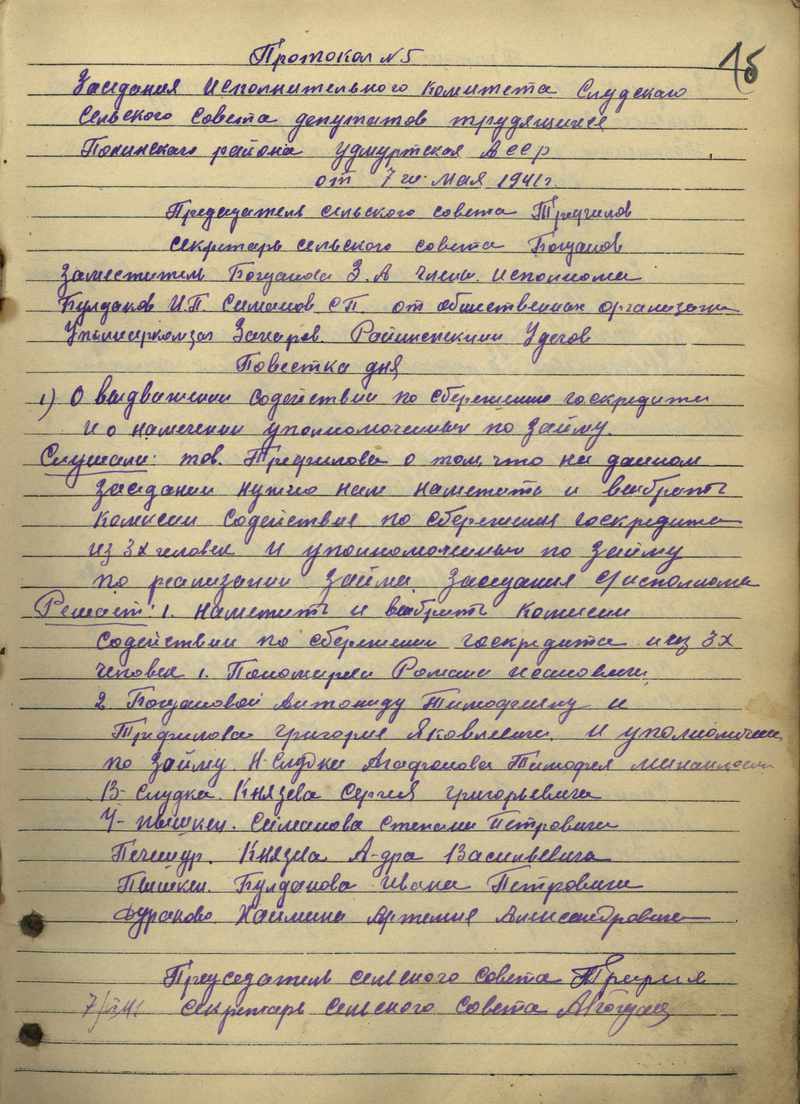 15
Протокол № 5
Заседания Исполнительного Комитета Слудского
Сельского Совета депутатов трудящихся
района Удмуртская АССР
от 7го мая 1941 г.
Председатель сельского совета Трефилов
Секретарь сельского совета Богданов
Заместитель Богданова З. А члены исполкома
Булдаков И.П. Симанов С.П. от общественных организаций
Захаров. Удегов
Повестка дня
1) О выдвижении содействии по сбережению госкредита
и о намечении уполномоченных по займу.
Слушали: тов. Трефилова о том, что на данном
заседании нужно нам наметить и выбрать
комисии содействие по сбережения госкредита
из 3х человек и уполномоченных по займу
по реализации займа. Заседания исполкома
Решает: 1. наметить и выбрать комисии
содействии по сбережении госкредита из 3х
человек 1. Пономарева Романа
2 Богдановой Антониду Тимофеевну и
Трефилова Григория Яковлевича и уполномочен
по займу. Н-Слудка Агафонова Тимофея Михайлович
В-Слудка. Князева Сергея Григорьевича
Симанова Степана Петровича
Печешур. Князева А-дра Васильевича
Пышкец. Булдакова Ивана Петровича
Артемия Александровича
Председатель сельского совета
секретарь сельского совета